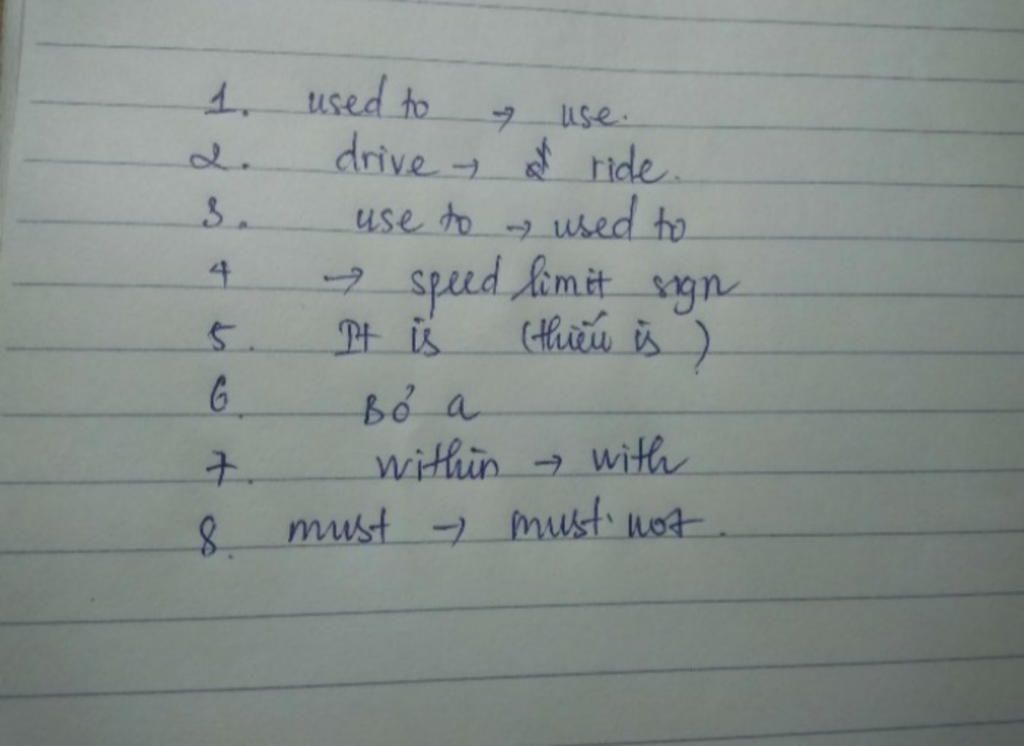 1. used to → use.
2. drive → ride.
3. use to → used to
4 → speed limit sign
5. It is (thiếu is)
6. Bỏ a
7. within → with
8. must → must not.